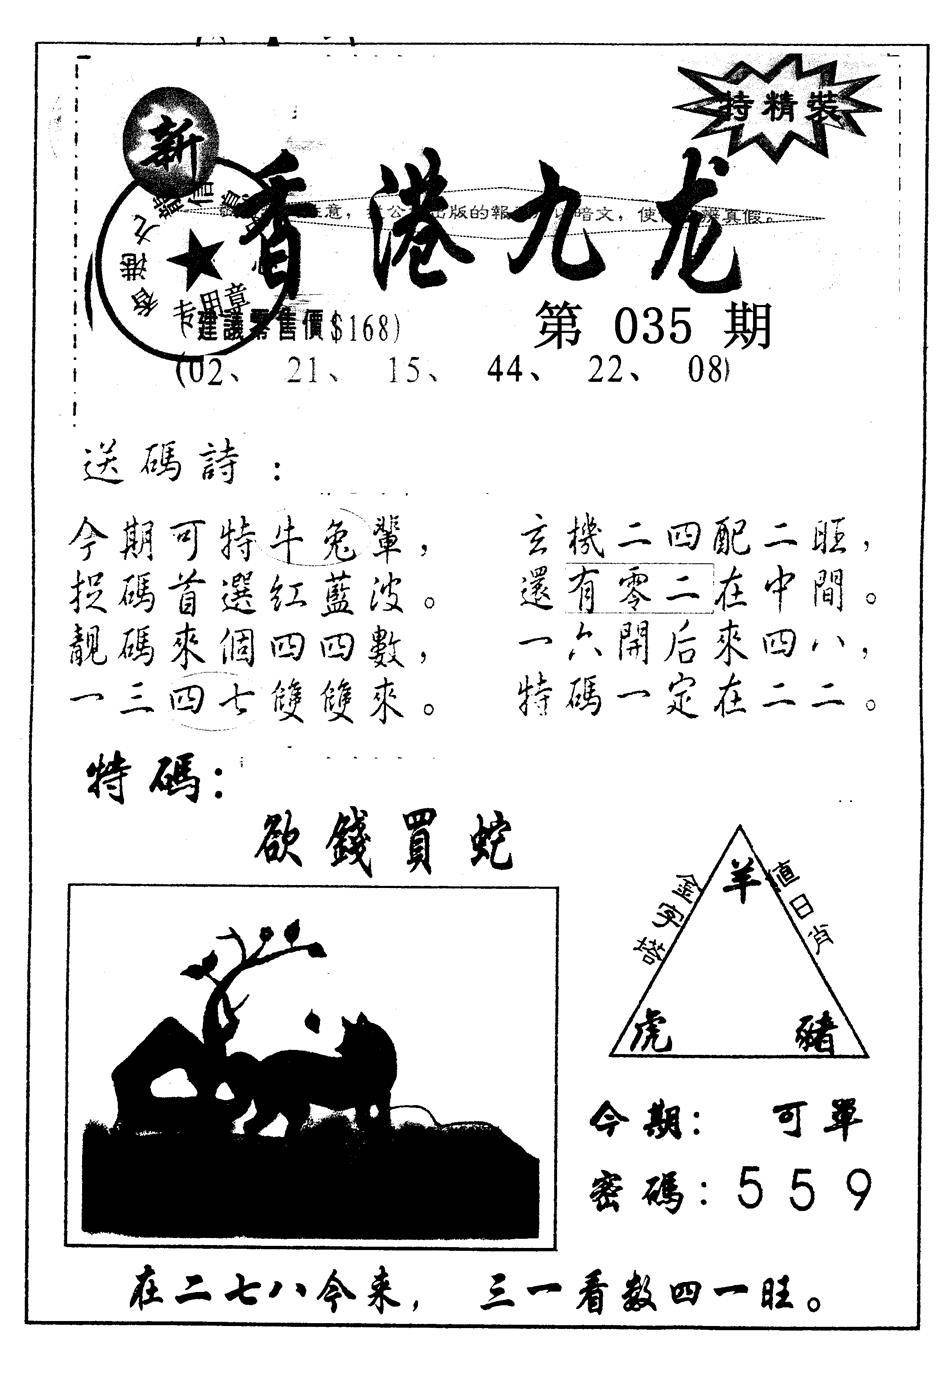 特精裝
新
香港九龙
香港九龍
信
专用章
意，
公
出版的報
暗文，使
真假。
(建議零售價$168)
第 035 期
(02、 21、 15、 44、 22、 08)
送碼詩：
今期可特牛兔輩，
捉碼首選红藍波。
靚碼來個四四數，
一三四七雙雙來。
玄機二四配二旺，
還有零二在中間。
一六開后來四八，
特碼一定在二二。
特碼：
欲錢買蛇
金字塔
值日肖
羊
虎 豬
今期： 可單
密碼：559
在二七八今来， 三一看数四一旺。